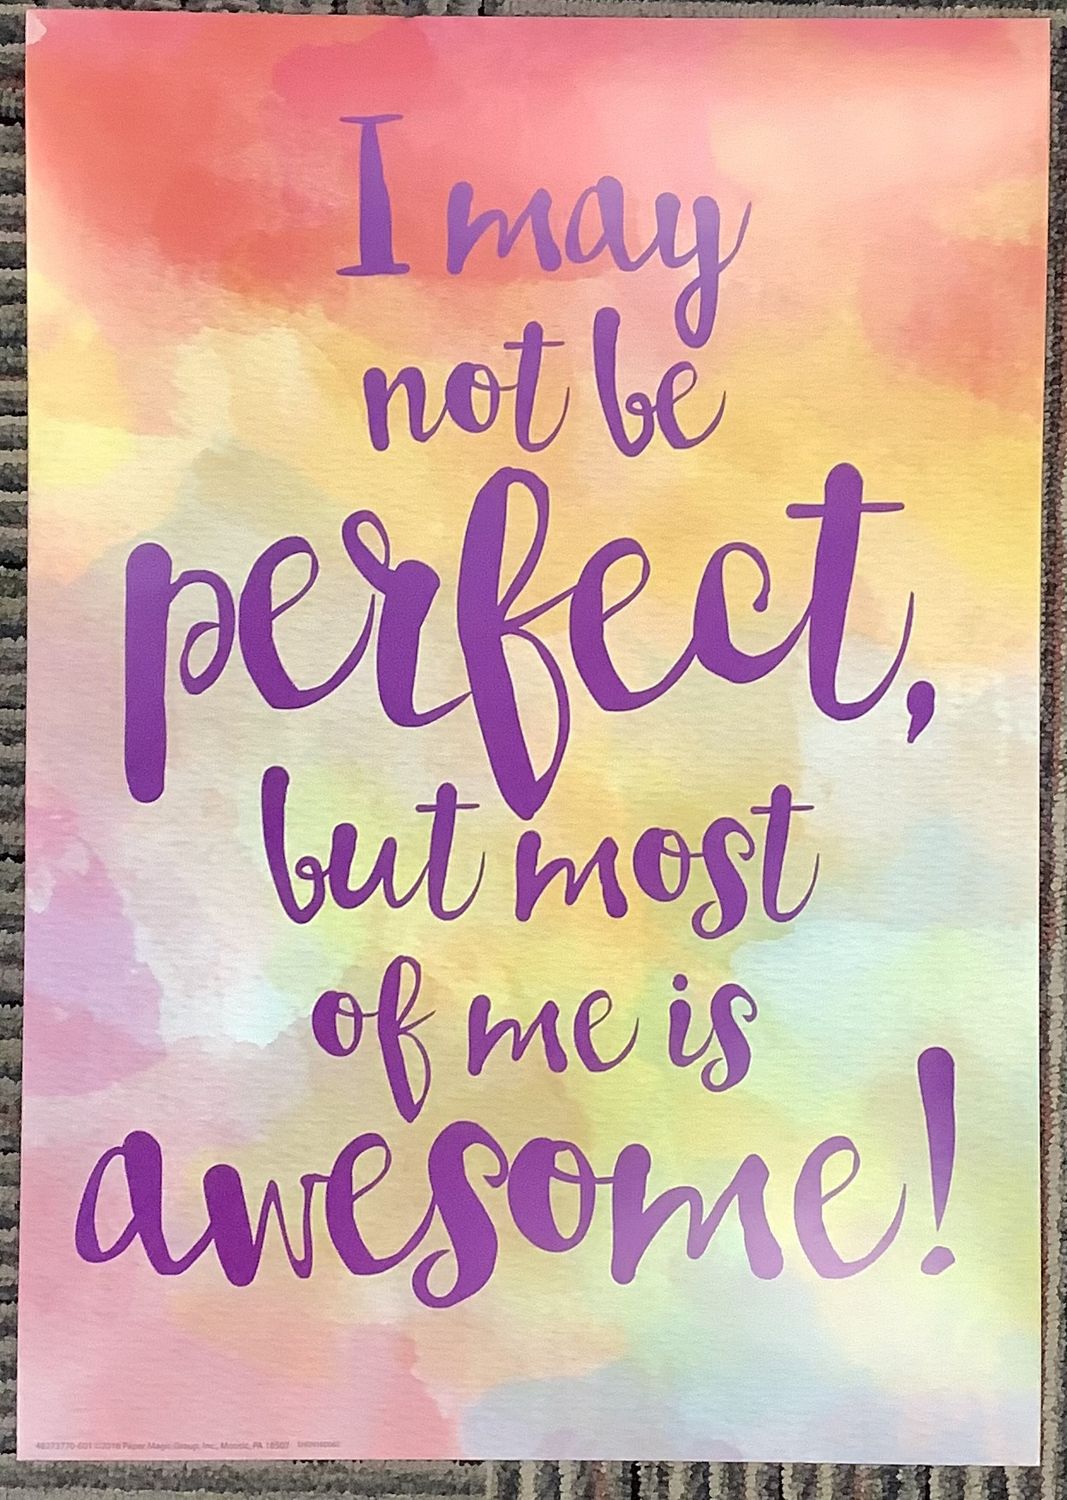 I may
not be
perfect,
but most
of me is
awesome!
©2016 Paper Magic Group, Inc., Moosic, PA 18507